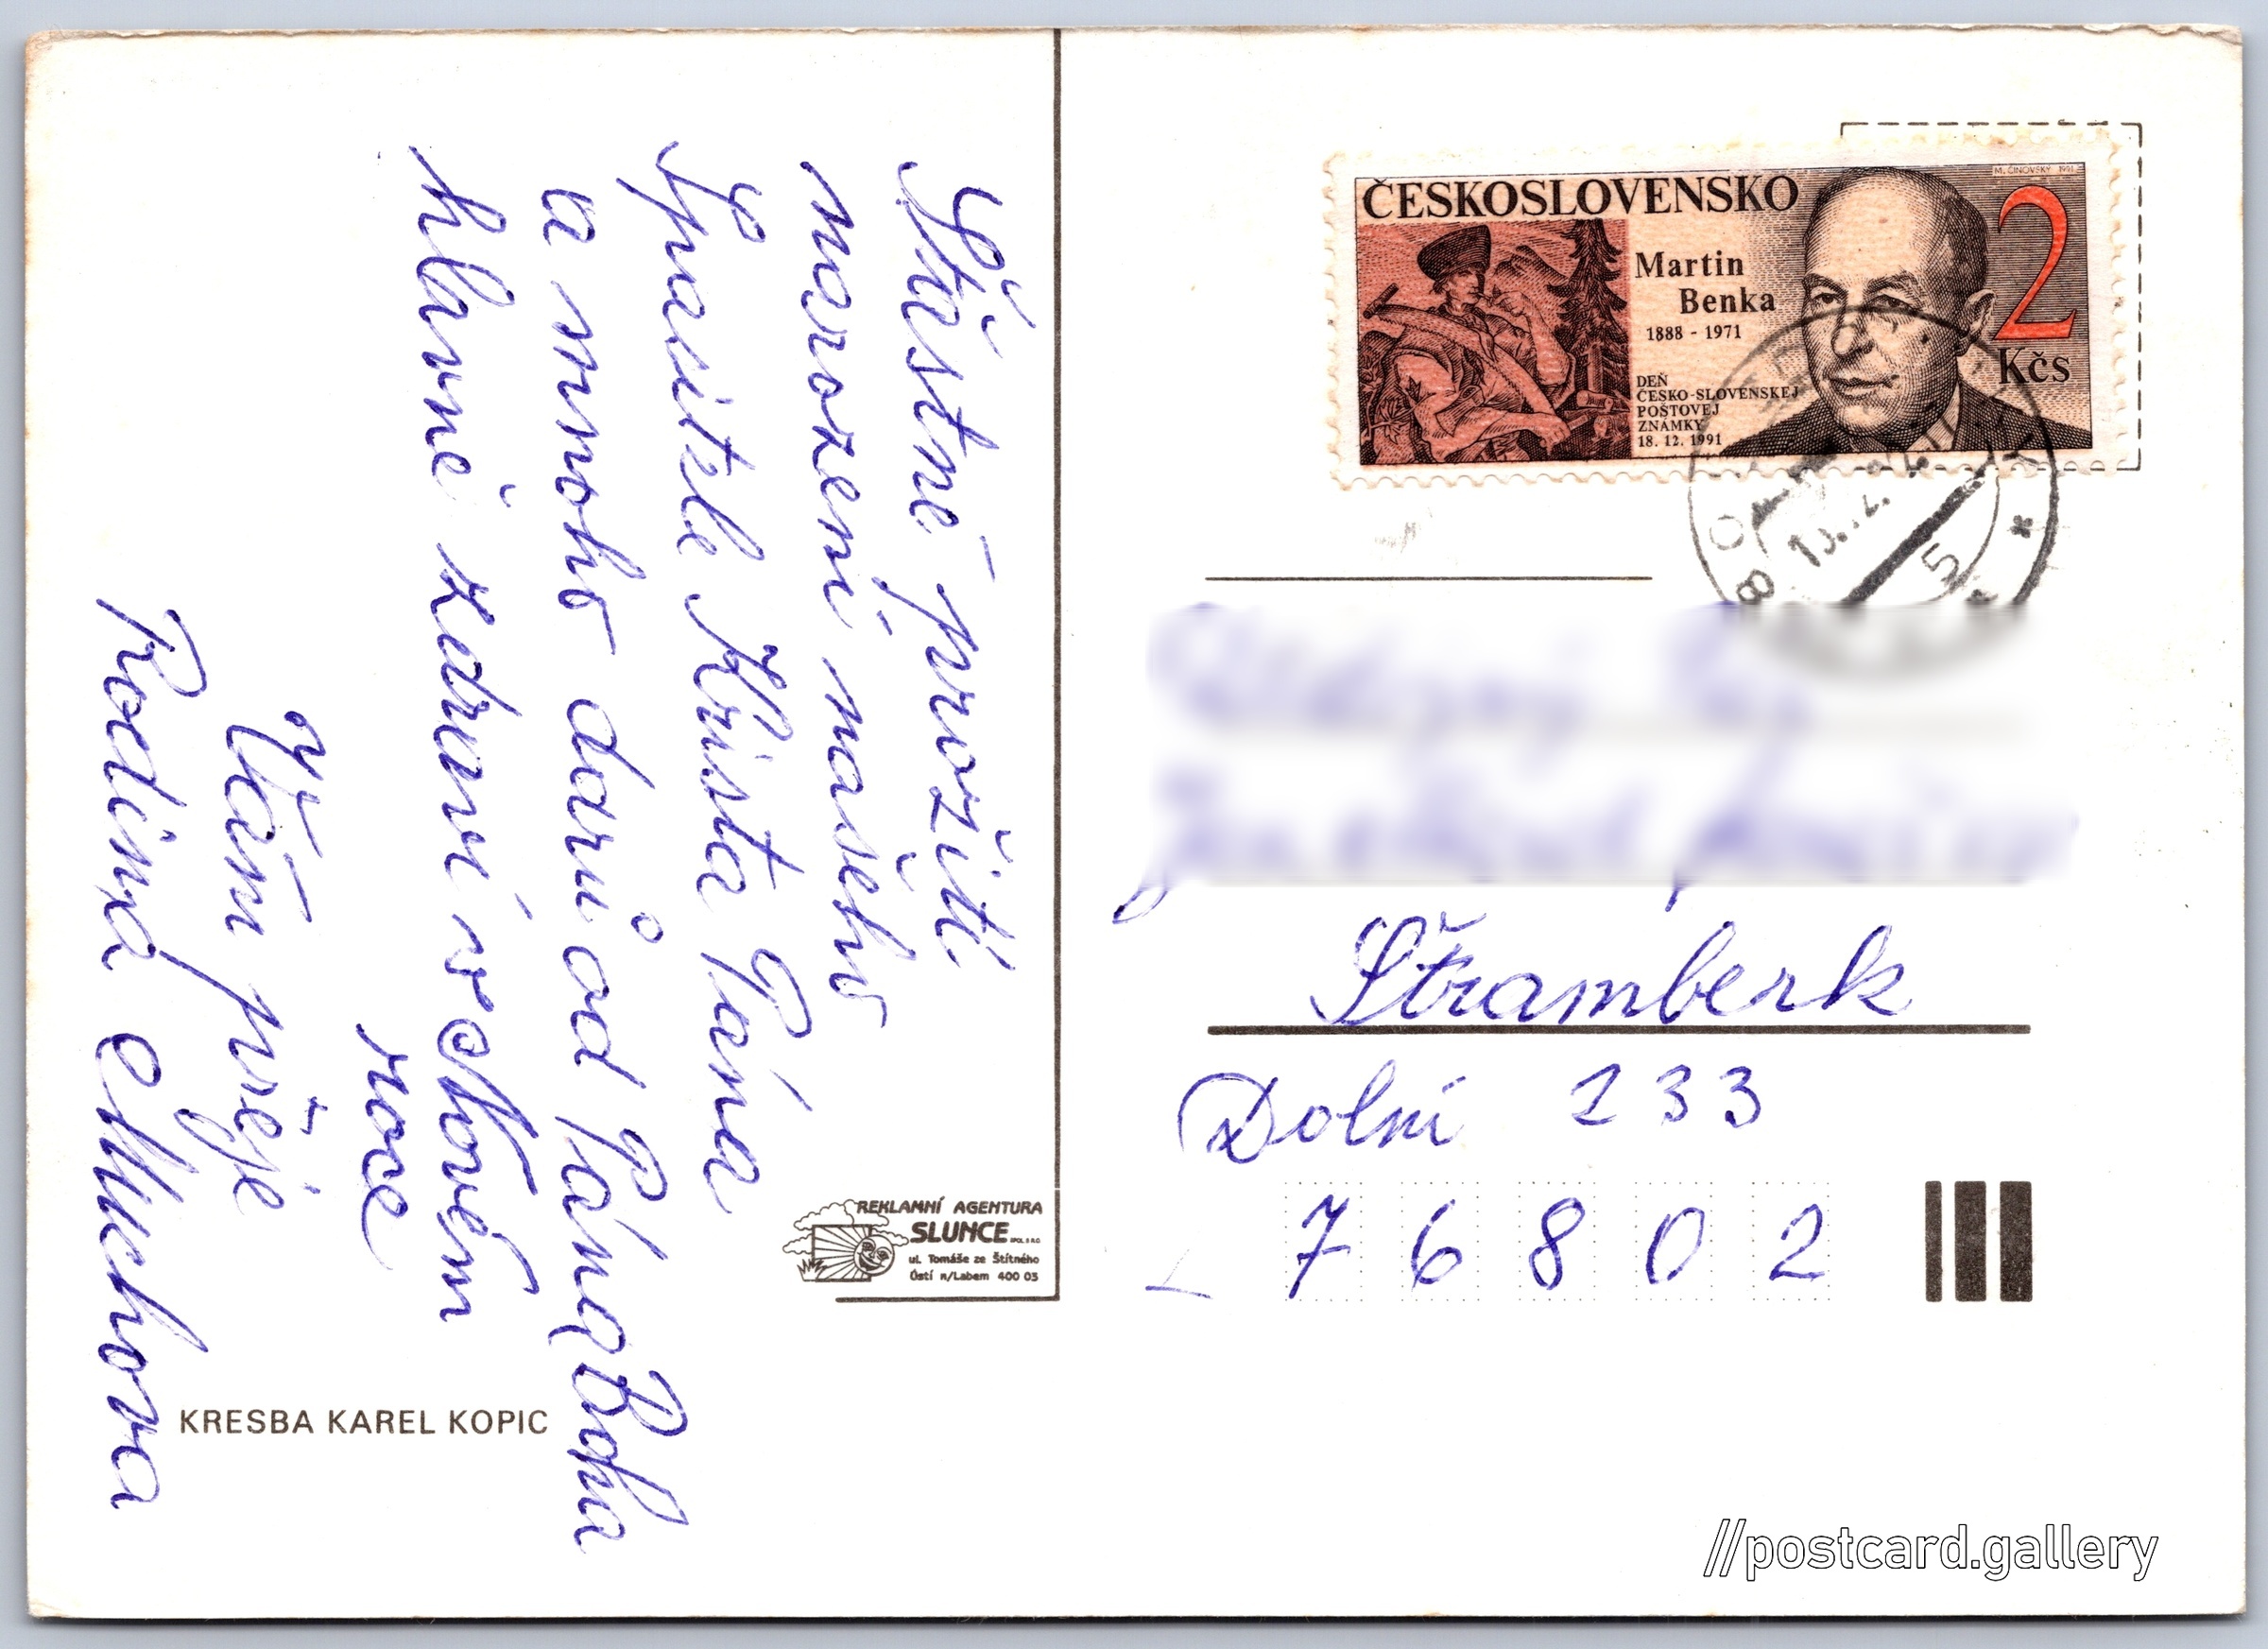 Šťastné prožití
narození našeho
Spasitele Krista Pána
a mnoho darů od Pána Boha
hlavně zdraví v Novém
roce
Vám přeje
Rodina Muchova
KRESBA KAREL KOPIC
REKLAMNÍ AGENTURA
SLUNCE SPOL. S R.O.
ul. Tomáše ze Štítného
Ústí n/Labem 400 03
ČESKOSLOVENSKO
M. ČINOVSKÝ 1991
2
Kčs
Martin
Benka
1888 - 1971
DEŇ
ČESKO-SLOVENSKEJ
POŠTOVEJ
ZNÁMKY
18. 12. 1991
Štramberk
Dolní 233
76802
//postcard.gallery